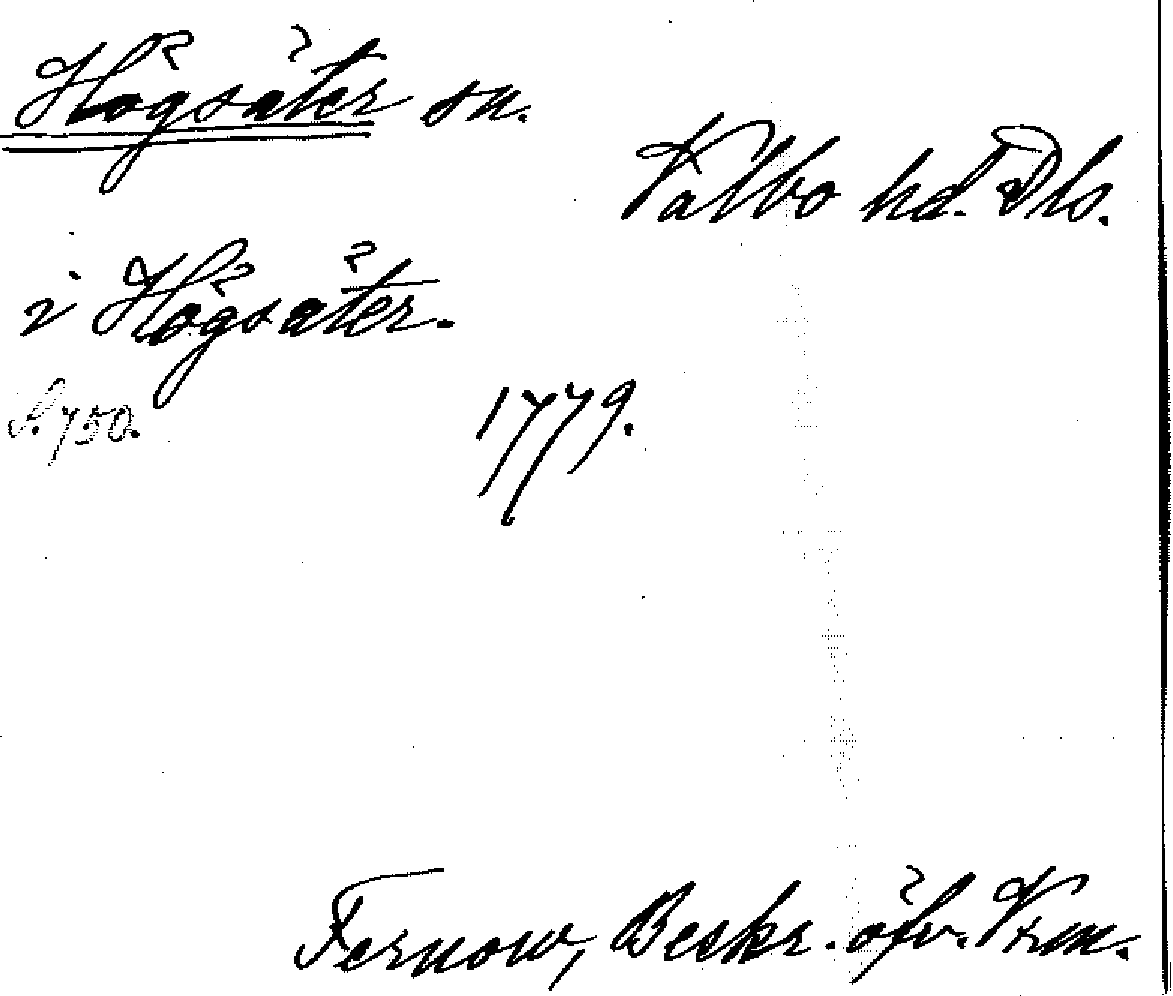 Högsäter sn.
Valbo hd. Dls.
i Högsäter.
S. 750. 1779.
Fernow, Beskr. öfv. Vrm.